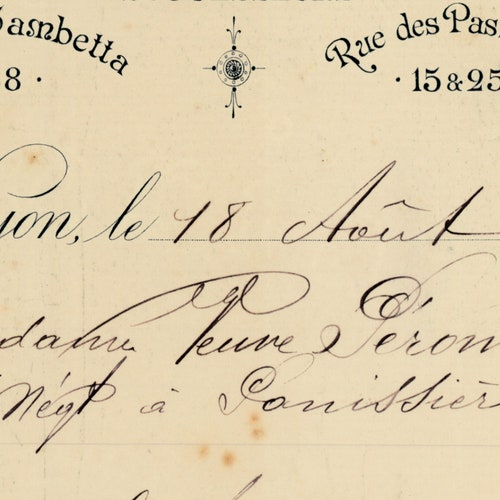 Gambetta
8 ·
Rue des Pas
· 15 & 25
yon, le 18 Août
dame Veuve Péron
Négt à Panissièr